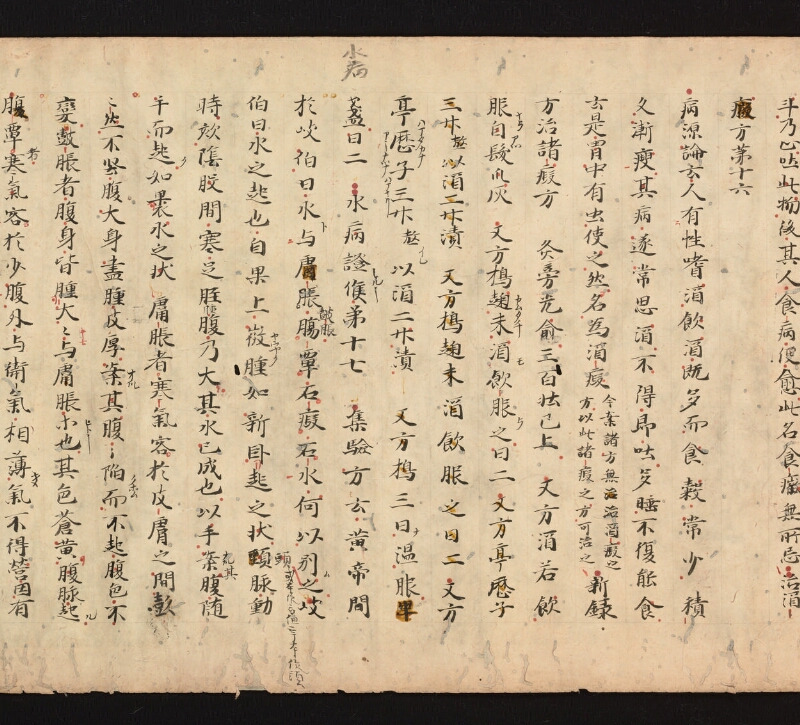 水病
斗乃止吐此物後其人食病便愈此名食癥無所忌治酒
癥方第十六
病源論云人有性嗜酒飲酒既多而食穀常少積
久漸瘦其病遂常思酒不得即吐多睡不復能食
云是胃中有虫使之然名為酒癥今案諸方無治酒癥之方以此諸癥之方可治之新録
方治諸癥方 灸旁光兪三百壮已上 又方酒若飲
服自髮灰 又方搗麹末酒飲服之日二又方亭歴子
三升熬以酒二升漬 又方搗麹末酒飲服之日二又方
亭歴子三升熬以酒二升漬 又方搗三日温服
盞日二 水病證候第十七 集驗方云黄帝問
於岐伯曰水与膚脹腸覃石癥石水何以別之岐
伯曰水之起也自果上微腫如新臥起之状頸脉動
時欬陰股間寒足脛腹乃大其水已成也以手案腹随
手而起如裹水之状 膚脹者寒氣客於皮膚之間
然不堅腹大身盡腫皮厚案其腹陥而不起腹色不
變皷脹者腹身皆腫大々与膚脹等也其色蒼黄腹脉起
腸覃寒氣客於少腹外与衛氣相薄氣不得營因有